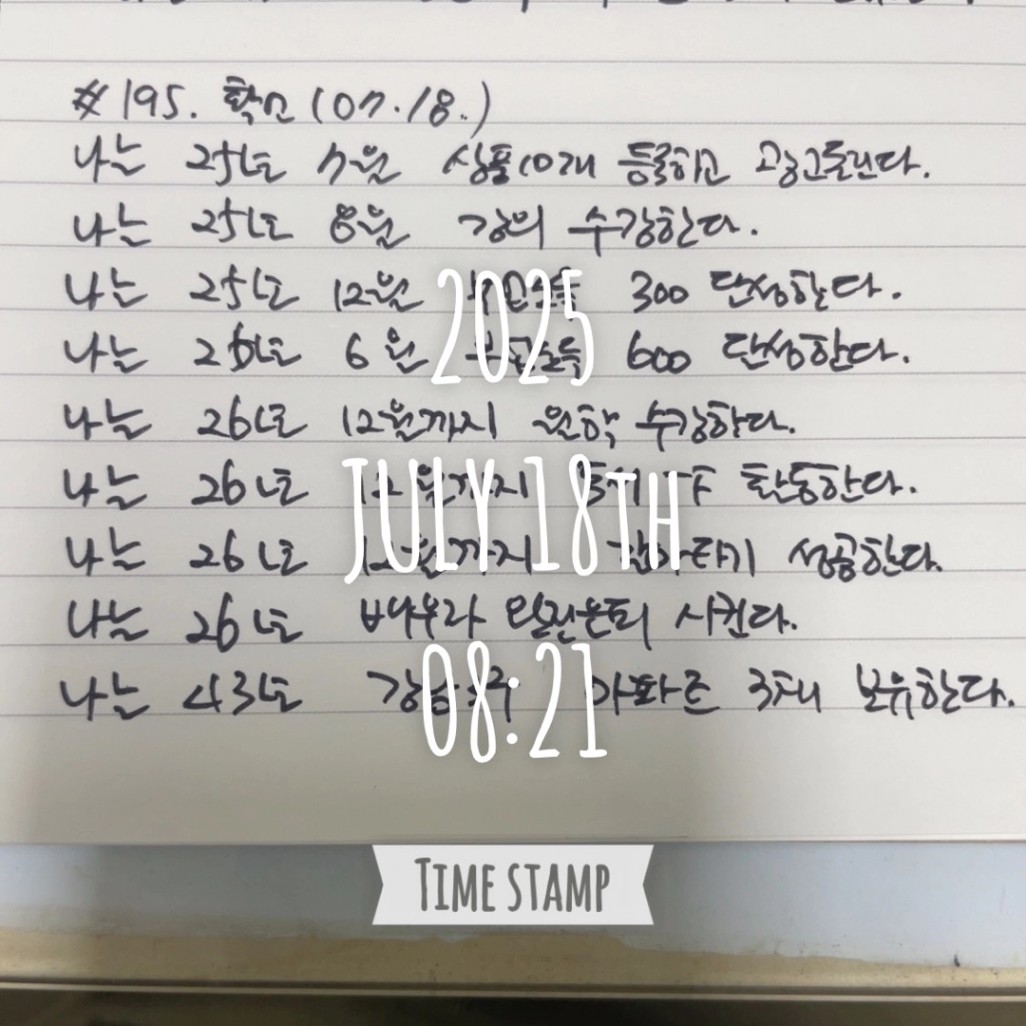 #195. 확언 (07.18.)
나는 25년도 7월 상품10개 등록하고 광고돌린다.
나는 25년도 8월 강의 수강한다.
나는 25년도 12월 300 달성한다.
나는 26년도 6월 600 달성한다.
나는 26년도 12월까지 원학 수강한다.
나는 26년도 12월까지 TF 활동한다.
나는 26년도 12월까지 갈아타기 성공한다.
나는 26년도 배우자 은퇴 시킨다.
나는 43년도 강남 아파트 3채 보유한다.
2025
JULY 18TH
08:21
TIME STAMP